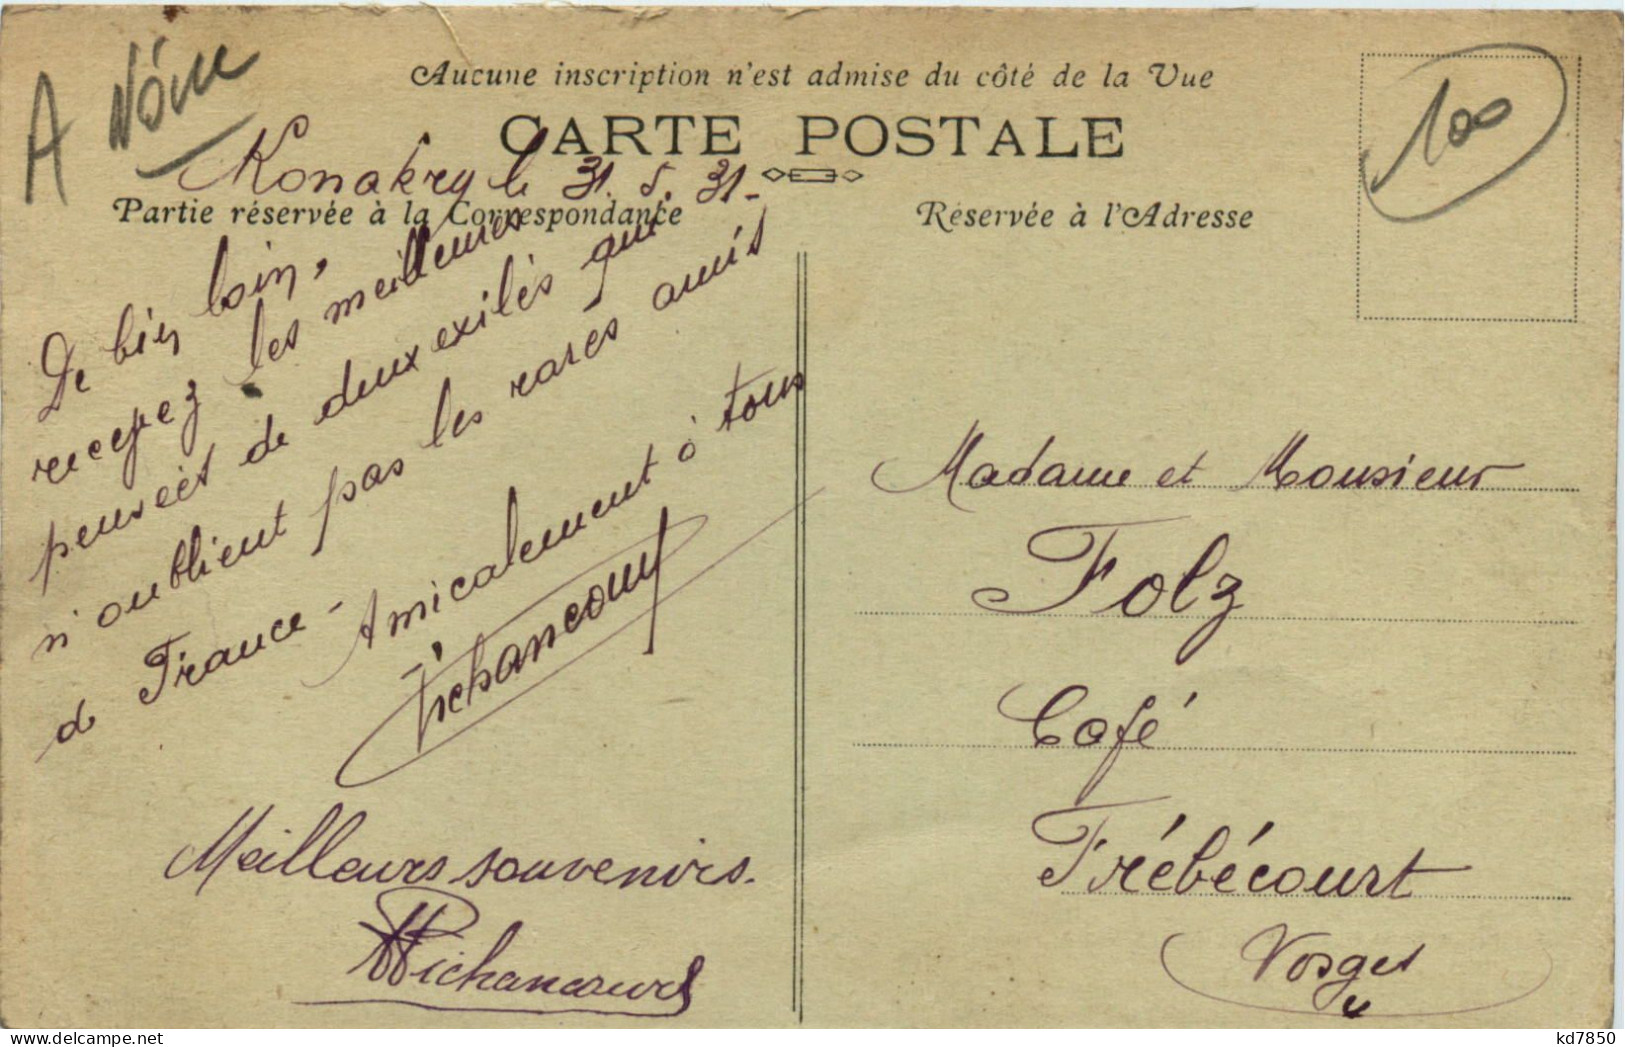 A
100
Aucune inscription n'est admise du côté de la Vue
CARTE POSTALE
Konakry le 31. 5. 31-
Partie réservée à la Correspondance
Réservée à l'Adresse
De bien loin,
recevez les meilleures
pensées de deux exilés qui
n'oublient pas les rares amis
de France - Amicalement à tous
Pichancourt
Meilleurs souvenirs.
Pichancourt
Madame et Monsieur
Folz
Café
Frébécourt
Vosges
kd7850